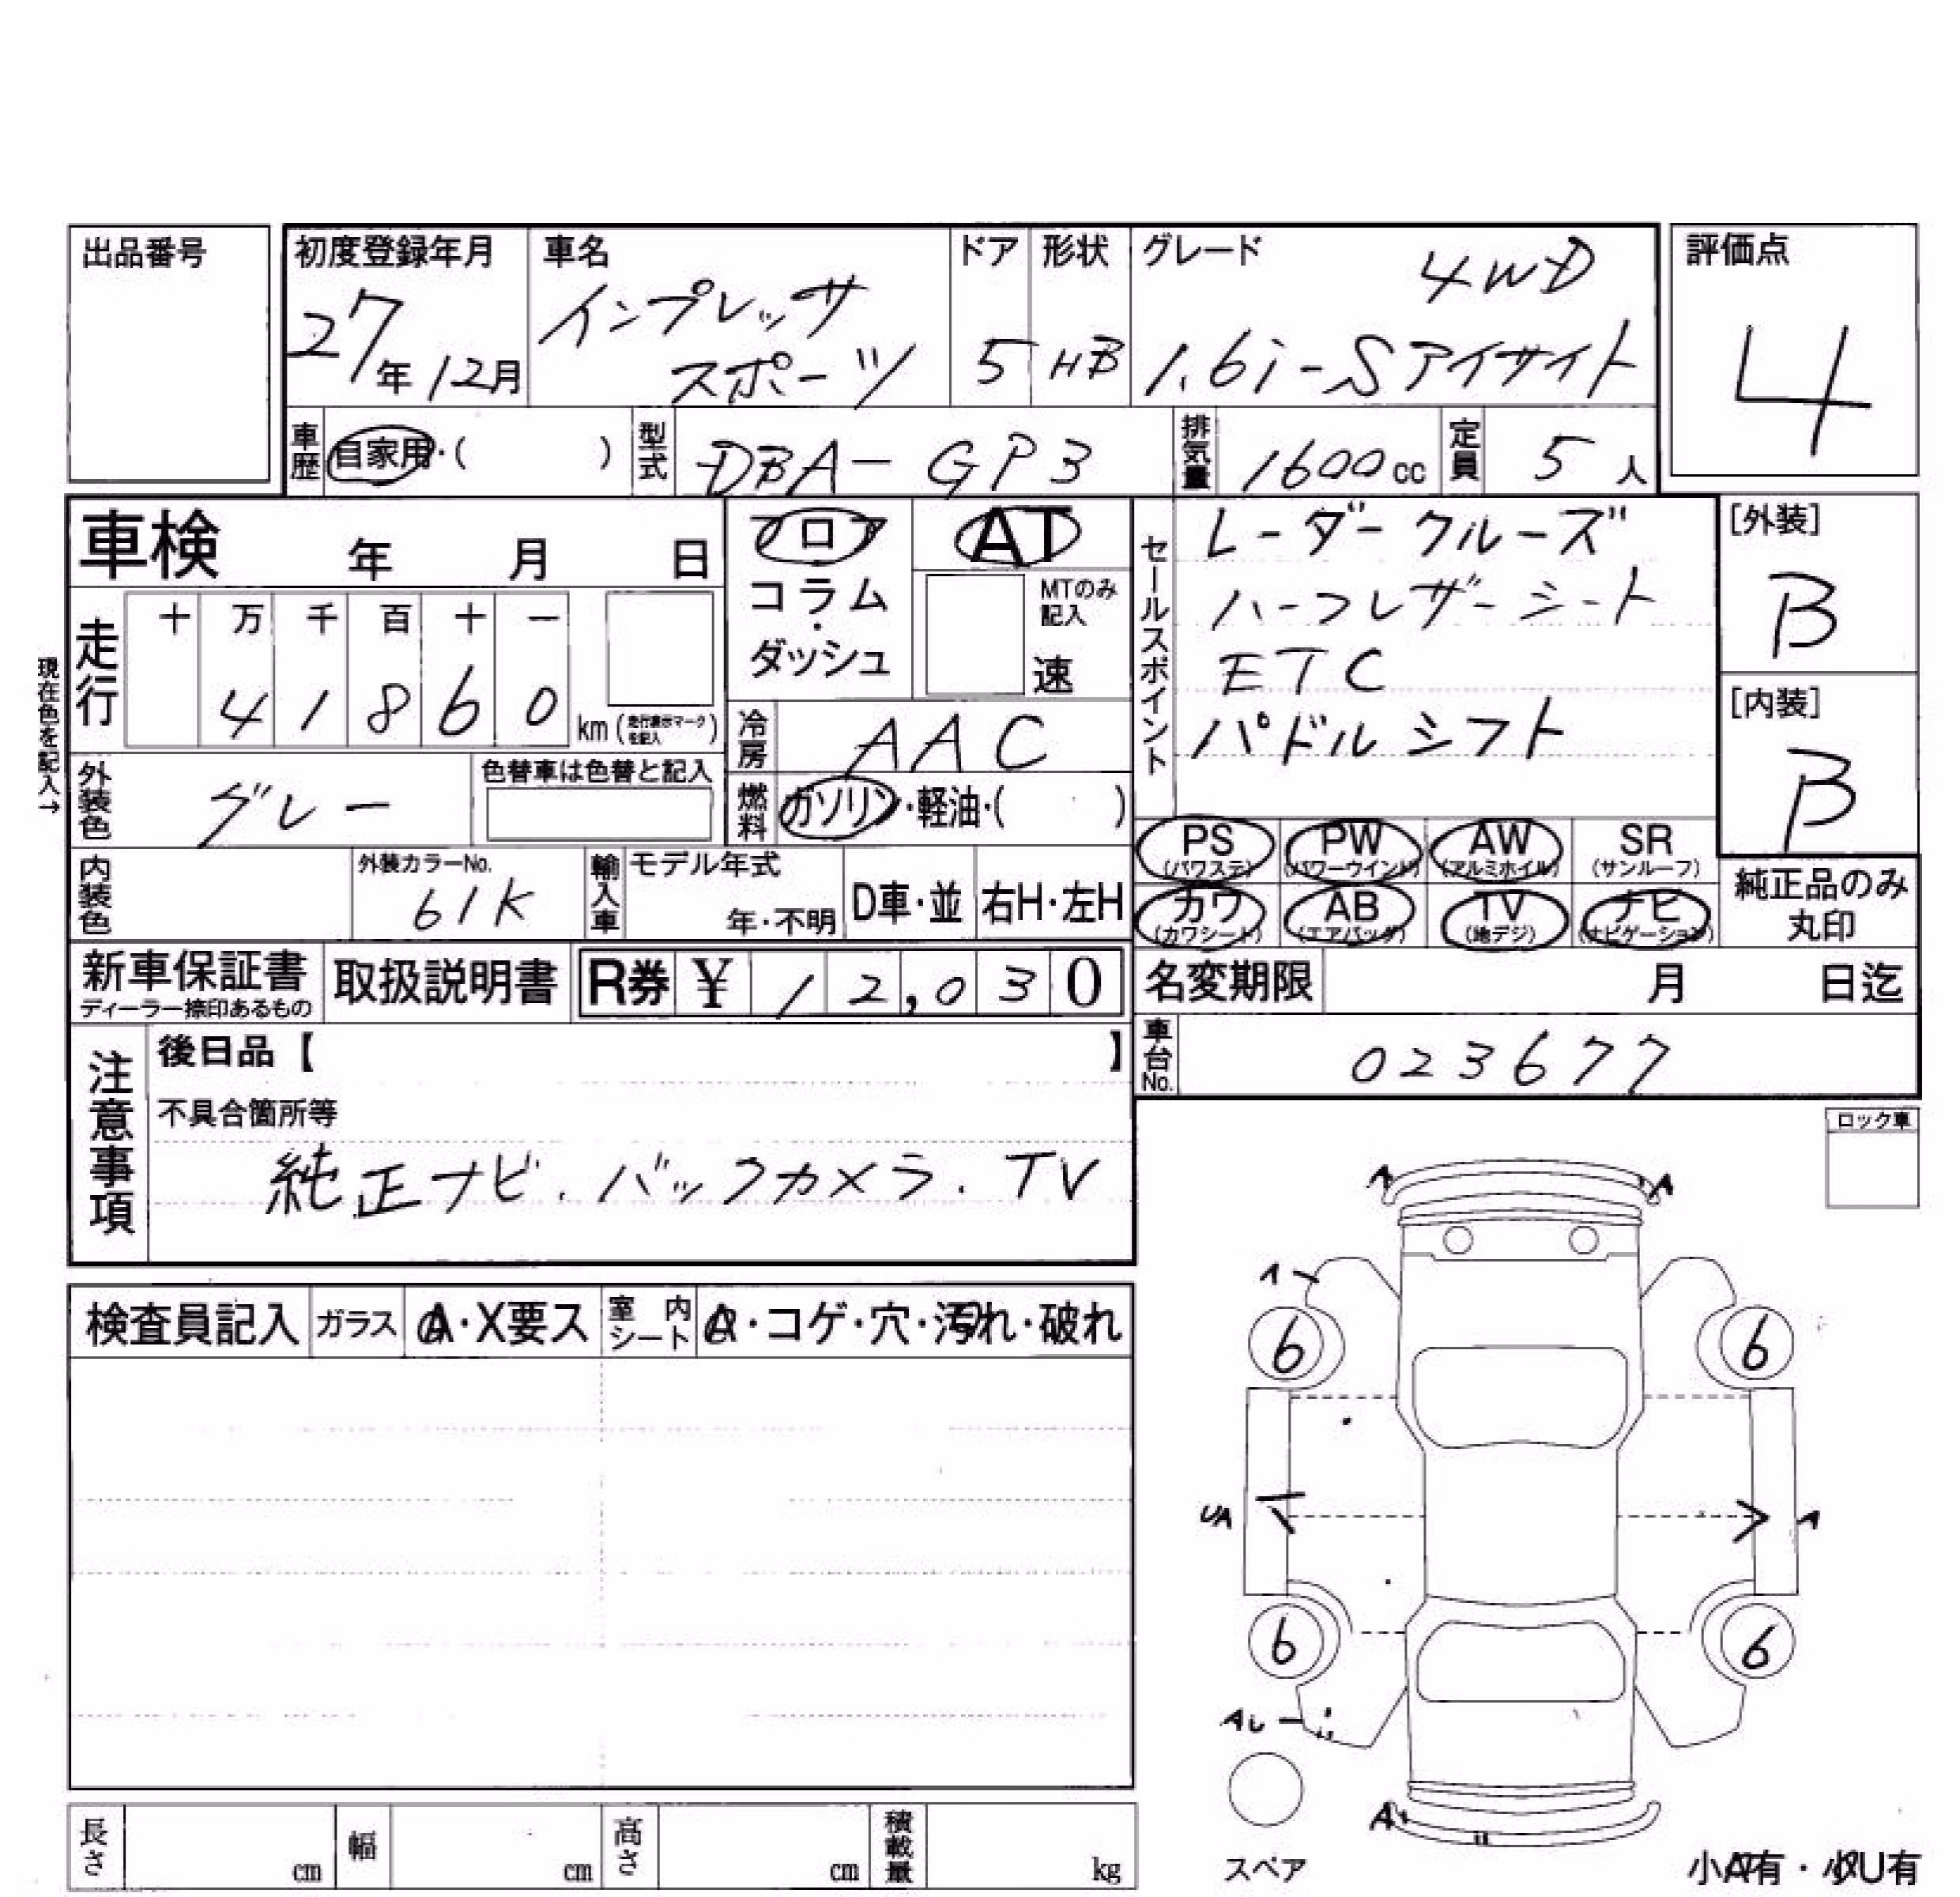 出品番号
初度登録年月 車名 ドア 形状 グレード 評価点
27年12月 インプレッサ スポーツ 5 HB 4WD 1.6i-Sアイサイト 4
車歴 自家用・( ) 型式 DBA-GP3 排気量 1600cc 定員 5人
車検 年 月 日
フロア・コラム・ダッシュ
AT
MTのみ記入
速
セールスポイント
レーダークルーズ
ハーフレザーシート
ETC
パドルシフト
[外装]
B
[内装]
B
現在色を記入→
走行 十 万 千 百 十 一
4 1 8 6 0 km (走行表示マークを記入)
冷房 AAC
外装色 グレー 色替車は色替と記入
燃料 ガソリン・軽油・( )
PS (パワステ) PW (パワーウインド) AW (アルミホイル) SR (サンルーフ)
カワ (カワシート) AB (エアバッグ) TV (地デジ) ナビ (ナビゲーション)
純正品のみ丸印
内装色 外装カラーNo. 61K 輸入車 モデル年式 年・不明 D車・並 右H・左H
新車保証書 ディーラー捺印あるもの 取扱説明書 R券 ¥ 12,030
名変期限 月 日迄
車台No. 023677
注意事項
後日品【 】
不具合箇所等
純正ナビ.バックカメラ.TV
ロック車
検査員記入 ガラス A・X要ス 室内シート A・コゲ・穴・汚れ・破れ
A A
A
6 6
UA A
6 6
A
スペア
小A有・小U有
長さ cm 幅 cm 高さ cm 積載量 kg